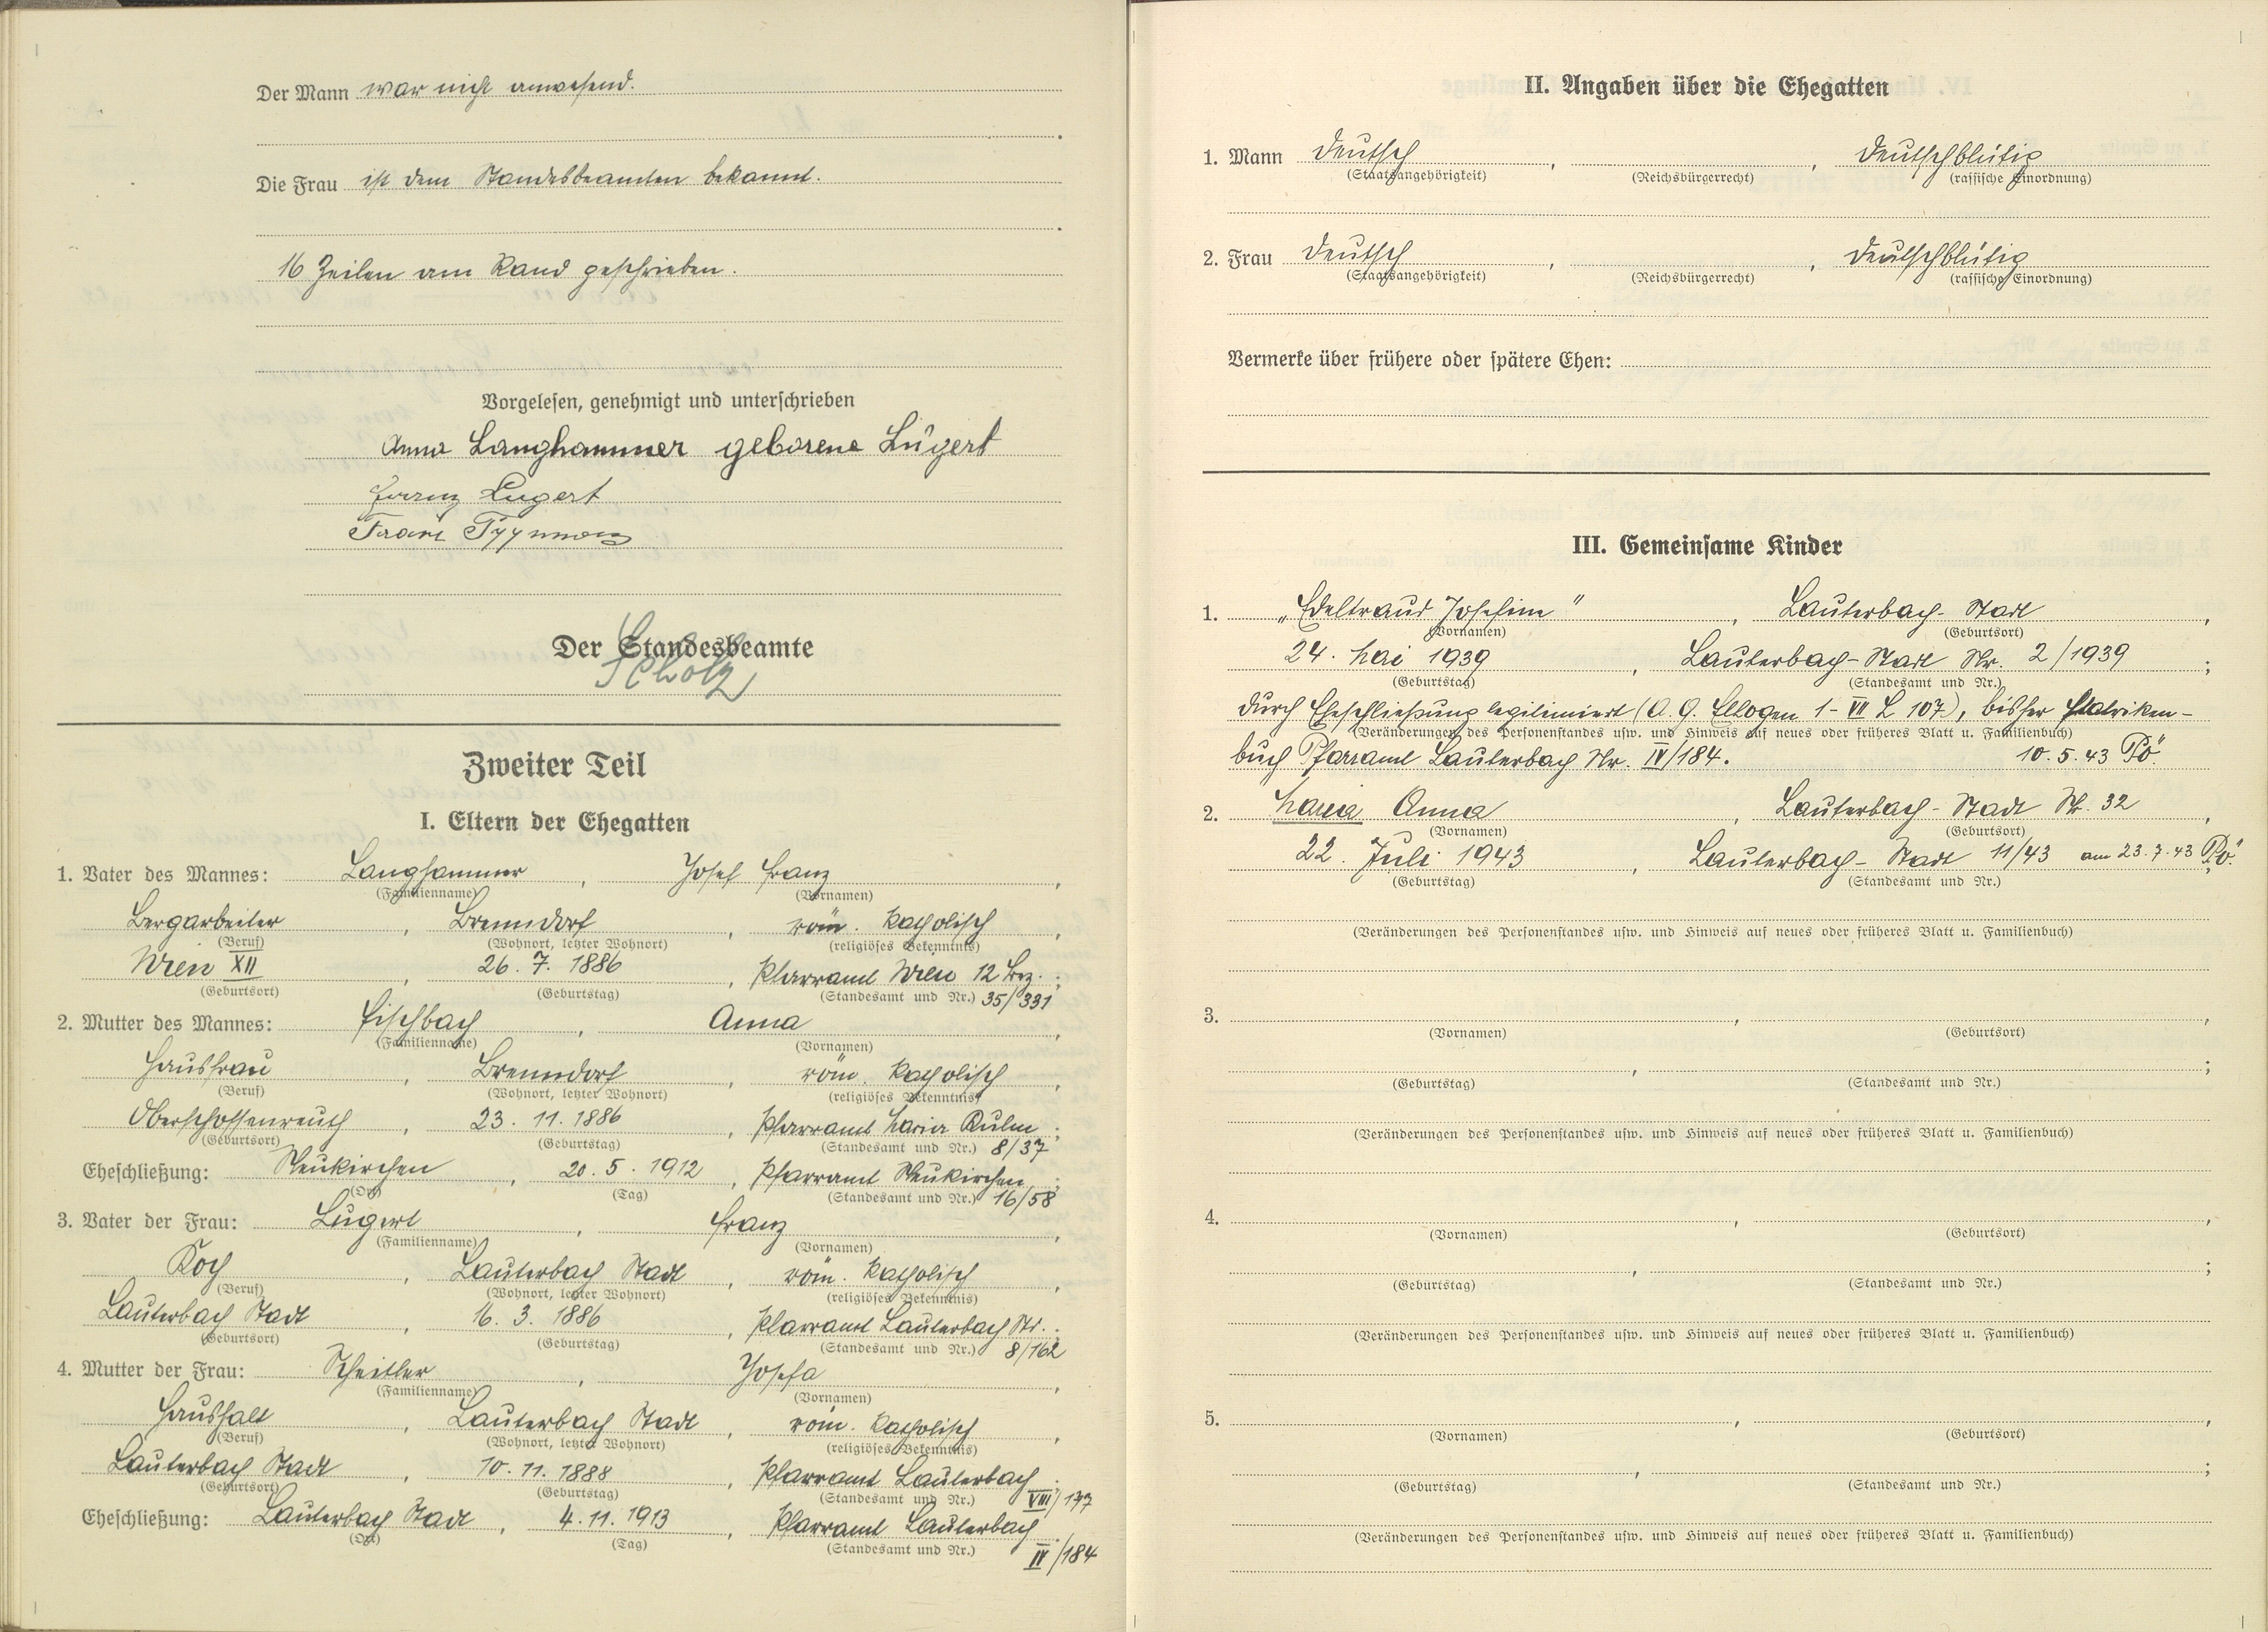 Der Mann war nicht anwesend.
Die Frau ist dem Standesbeamten bekannt.
16 Zeilen am Rand geschrieben.
Vorgelesen, genehmigt und unterschrieben
Anna Langhammer geborene Lugert
Franz Lugert
Franz
Der Standesbeamte
Scholz
Zweiter Teil
I. Eltern der Ehegatten
1. Vater des Mannes: Langhammer, Josef Franz,
(Familienname) (Vornamen)
Bergarbeiter, Brenndorf, röm. katholisch,
(Beruf) (Wohnort, letzter Wohnort) (religiöses Bekenntnis)
Wien XII, 26. 7. 1886, Pfarramt Wien 12 Bez.;
(Geburtsort) (Geburtstag) (Standesamt und Nr.) 35/331
2. Mutter des Mannes: Fischbach, Anna,
(Familienname) (Vornamen)
Hausfrau, Brenndorf, röm. katholisch,
(Beruf) (Wohnort, letzter Wohnort) (religiöses Bekenntnis)
Oberschossenreuth, 23. 11. 1886, Pfarramt Maria Kulm;
(Geburtsort) (Geburtstag) (Standesamt und Nr.) 8/37
Eheschließung: Neukirchen, 20. 5. 1912, Pfarramt Neukirchen;
(Ort) (Tag) (Standesamt und Nr.) 16/58
3. Vater der Frau: Lugert, Franz,
(Familienname) (Vornamen)
Koch, Lauterbach Stadt, röm. katholisch,
(Beruf) (Wohnort, letzter Wohnort) (religiöses Bekenntnis)
Lauterbach Stadt, 16. 3. 1886, Pfarramt Lauterbach St.;
(Geburtsort) (Geburtstag) (Standesamt und Nr.) 8/162
4. Mutter der Frau: Scheitler, Josefa,
(Familienname) (Vornamen)
Haushalt, Lauterbach Stadt, röm. katholisch,
(Beruf) (Wohnort, letzter Wohnort) (religiöses Bekenntnis)
Lauterbach Stadt, 10. 11. 1888, Pfarramt Lauterbach;
(Geburtsort) (Geburtstag) (Standesamt und Nr.) VIII/177
Eheschließung: Lauterbach Stadt, 4. 11. 1913, Pfarramt Lauterbach
(Ort) (Tag) (Standesamt und Nr.) IV/184
II. Angaben über die Ehegatten
1. Mann Deutsch, , Deutschblütig
(Staatsangehörigkeit) (Reichsbürgerrecht) (rassische Einordnung)
2. Frau Deutsch, , Deutschblütig
(Staatsangehörigkeit) (Reichsbürgerrecht) (rassische Einordnung)
Vermerke über frühere oder spätere Ehen:
III. Gemeinsame Kinder
1. „Edeltraud Josefine", Lauterbach-Stadt,
(Vornamen) (Geburtsort)
24. Mai 1939, Lauterbach-Stadt Nr. 2/1939;
(Geburtstag) (Standesamt und Nr.)
durch Eheschließung legitimiert (A. G. Elbogen 1-VII L 107), bisher Matriken-
(Veränderungen des Personenstandes usw. und Hinweis auf neues oder früheres Blatt u. Familienbuch)
buch Pfarramt Lauterbach Nr. IV/184. 10. 5. 43 Pö.
2. Maria Anna, Lauterbach-Stadt Nr. 32,
(Vornamen) (Geburtsort)
22. Juli 1943, Lauterbach-Stadt 11/43 am 23. 7. 43 Pö.;
(Geburtstag) (Standesamt und Nr.)
(Veränderungen des Personenstandes usw. und Hinweis auf neues oder früheres Blatt u. Familienbuch)
3. , ,
(Vornamen) (Geburtsort)
, ;
(Geburtstag) (Standesamt und Nr.)
(Veränderungen des Personenstandes usw. und Hinweis auf neues oder früheres Blatt u. Familienbuch)
4. , ,
(Vornamen) (Geburtsort)
, ;
(Geburtstag) (Standesamt und Nr.)
(Veränderungen des Personenstandes usw. und Hinweis auf neues oder früheres Blatt u. Familienbuch)
5. , ,
(Vornamen) (Geburtsort)
, ;
(Geburtstag) (Standesamt und Nr.)
(Veränderungen des Personenstandes usw. und Hinweis auf neues oder früheres Blatt u. Familienbuch)